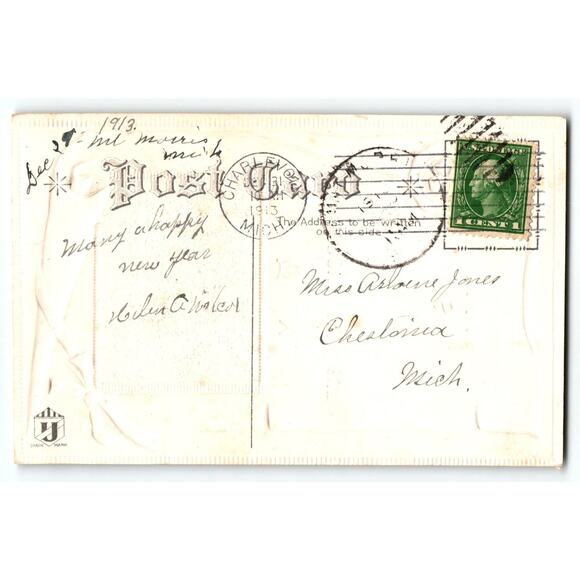 1913.
Dec 29- Mt Morris
Mich
Post Card
CHARLEVOIX
1913
MICH.
The Address to be written
on this side.
1 CENT 1
Many a happy
new year
Helen A Wilcox
Miss Arlvene Jones
Chestonia
Mich.
TRADE MARK